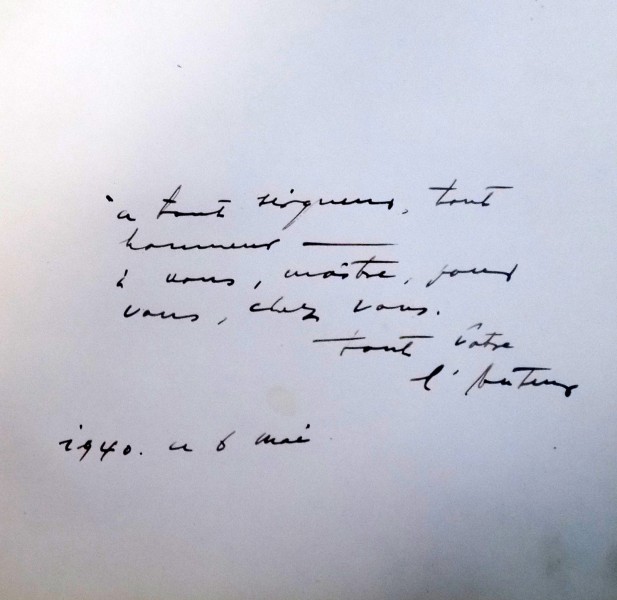 à tout seigneur, tout
honneur —
à vous, maître, pour
vous, chez vous.
tout vôtre
l'Auteur
1940. le 6 mai